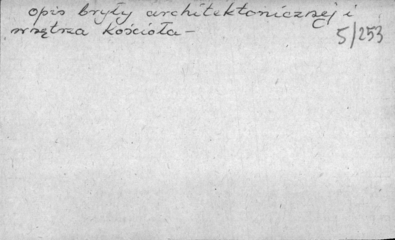 opis bryły architektonicznej i
wnętrza kościoła –
5/253